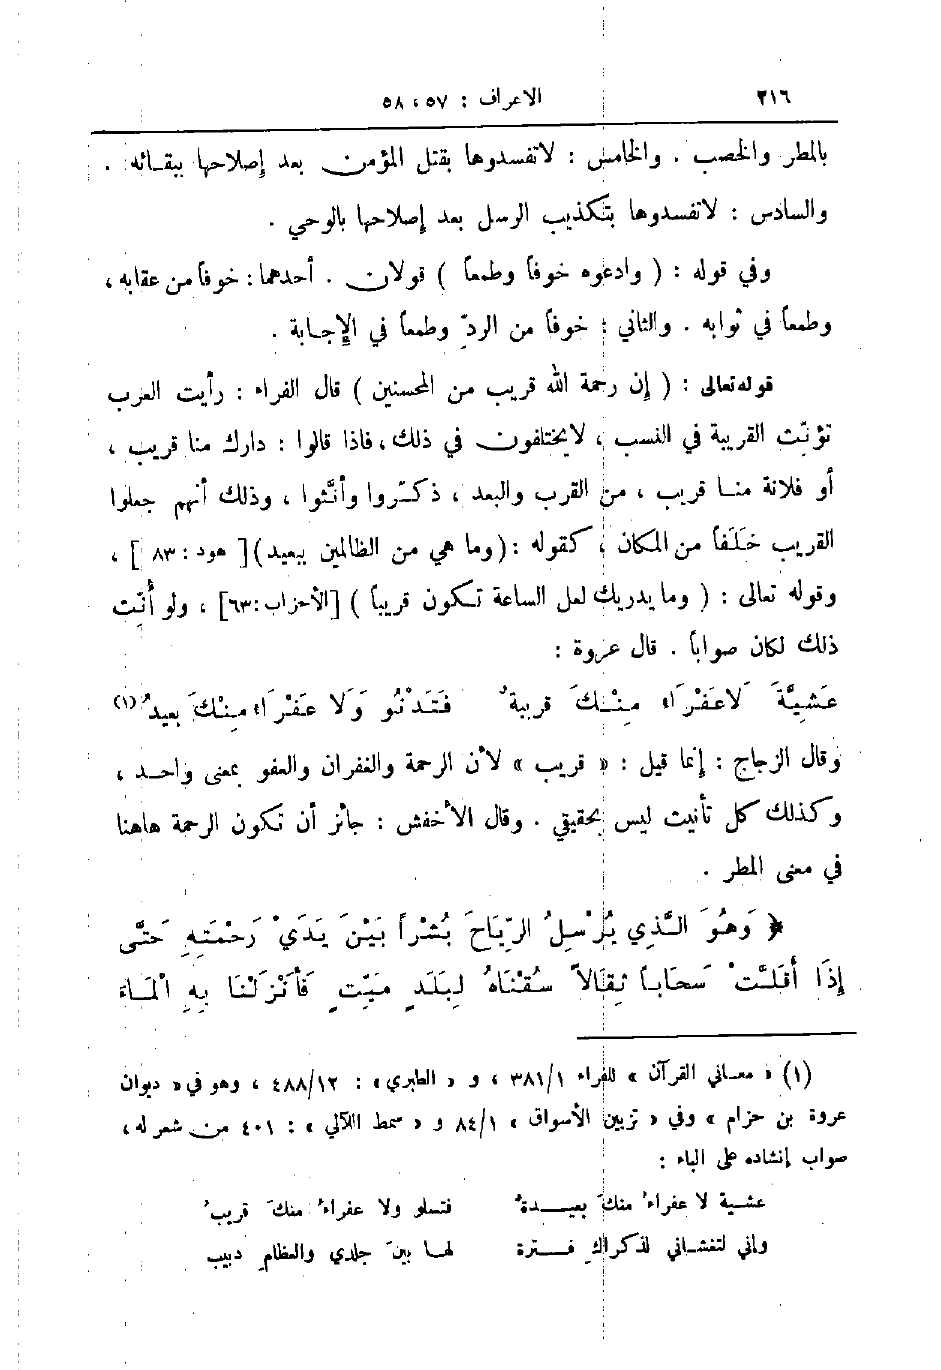 ٢١٦ الاعراف : ٥٧ ، ٥٨
بالمطر والخصب . والخامس : لاتفسدوها بقتل المؤمن بعد إصلاحها ببقائه .
والسادس : لاتفسدوها بتكذيب الرسل بعد إصلاحها بالوحي .
وفي قوله : ( وادعوه خوفاً وطمعاً ) قولان . أحدهما : خوفاً من عقابه ،
وطمعاً في ثوابه . والثاني : خوفاً من الردّ وطمعاً في الإجابة .
قوله تعالى : ( إن رحمة الله قريب من المحسنين ) قال الفراء : رأيت العرب
تؤنّث القريبة في النسب ، لايختلفون في ذلك ، فاذا قالوا : دارك منا قريب ،
أو فلانة منا قريب ، من القرب والبعد ، ذكّروا وأنَّثوا ، وذلك أنهم جعلوا
القريب خَلَفاً من المكان ، كقوله : ( وما هي من الظالمين ببعيد ) [ هود : ٨٣ ] ،
وقوله تعالى : ( وما يدريك لعل الساعة تكون قريباً ) [الأحزاب : ٦٣] ، ولو أُنّث
ذلك لكان صواباً . قال عروة :
عَشِيَّةَ لاَ عَفْرَاء مِنْكَ قريبةٌ فَتَدْنُو وَلا عَفْرَاء مِنْكَ بَعِيدُ (١)
وقال الزجاج : إنما قيل : « قريب » لأن الرحمة والغفران والعفو بمعنى واحد ،
وكذلك كل تأنيث ليس بحقيقي . وقال الأخفش : جائز أن تكون الرحمة هاهنا
في معنى المطر .
﴿ وَهُوَ الَّذِي يُرْسِلُ الرِّيَاحَ بُشْراً بَيْنَ يَدَيْ رَحْمَتِهِ حَتَّى
إِذَا أَقَلَّتْ سَحَاباً ثِقَالاً سُقْنَاهُ لِبَلَدٍ مَيِّتٍ فَأَنْزَلْنَا بِهِ الْمَاءَ
(١) « معاني القرآن » للفراء ٣٨١/١ ، و « الطبري » : ٤٨٨/١٢ ، وهو في « ديوان
عروة بن حزام » وفي « تزيين الأسواق » ٨٤/١ و « سمط اللآلي » : ٤٠١ من شعر له ،
صواب إنشاده على الباء :
عشية لا عفراءُ منكَ بعيدةٌ فتسلو ولا عفراءُ منكَ قريبُ
واني لتغشاني لذكراكِ فترة لها بينَ جلدي والعظامِ دبيب